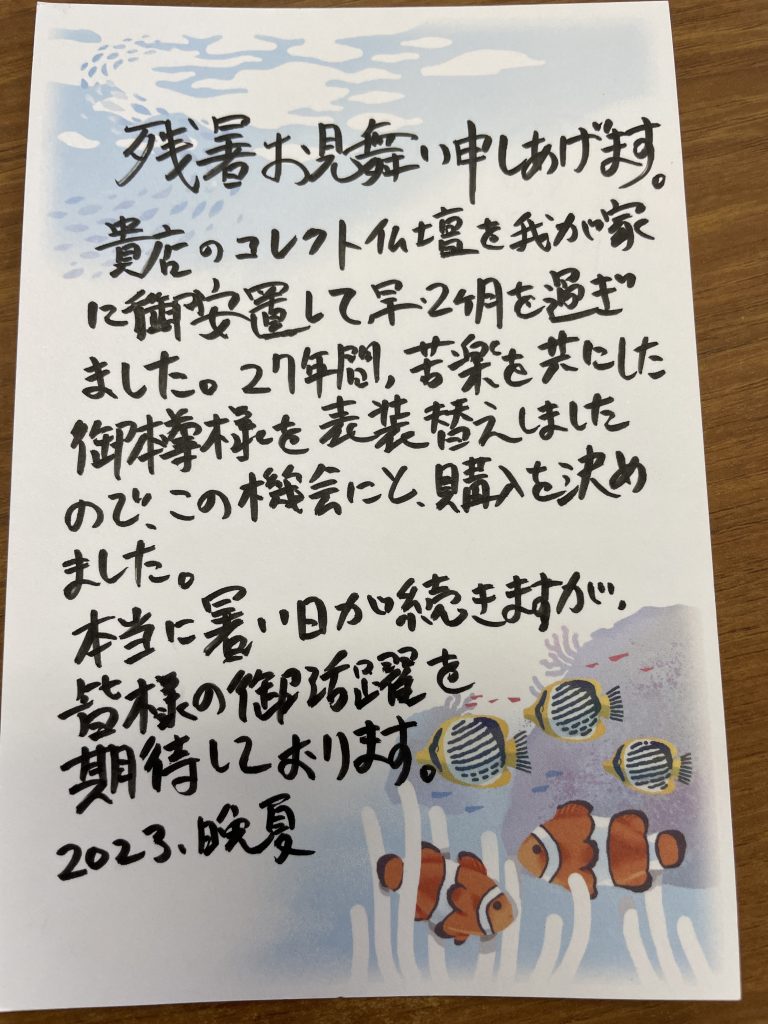 残暑お見舞い申しあげます。
貴店のコレクト仏壇を我が家
に御安置して早2ヶ月を過ぎ
ました。27年間,苦楽を共にした
御本尊様を表装替えしました
ので、この機会にと、購入を決め
ました。
本当に暑い日が続きますが,
皆様の御活躍を
期待しております。
2023.晩夏